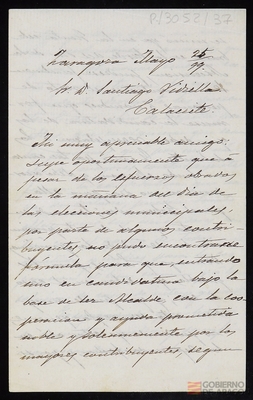 R/3052/37
Zaragoza Mayo 25/77
Sr D. Santiago Vidiella
Calaceite.
Mi muy apreciable amigo:
Supe oportunamente que a
pesar de los esfuerzos
en la mañana del dia de
las elecciones municipales
por parte de algunos contri-
buyentes no pudo encontrarse
fórmula para que entrando
uno en candidatura bajo la
base de ser Alcalde, con la coo-
peracion y ayuda prometida
noble y solemnemente por los
mayores contribuyentes, segun
GOBIERNO
DE ARAGON